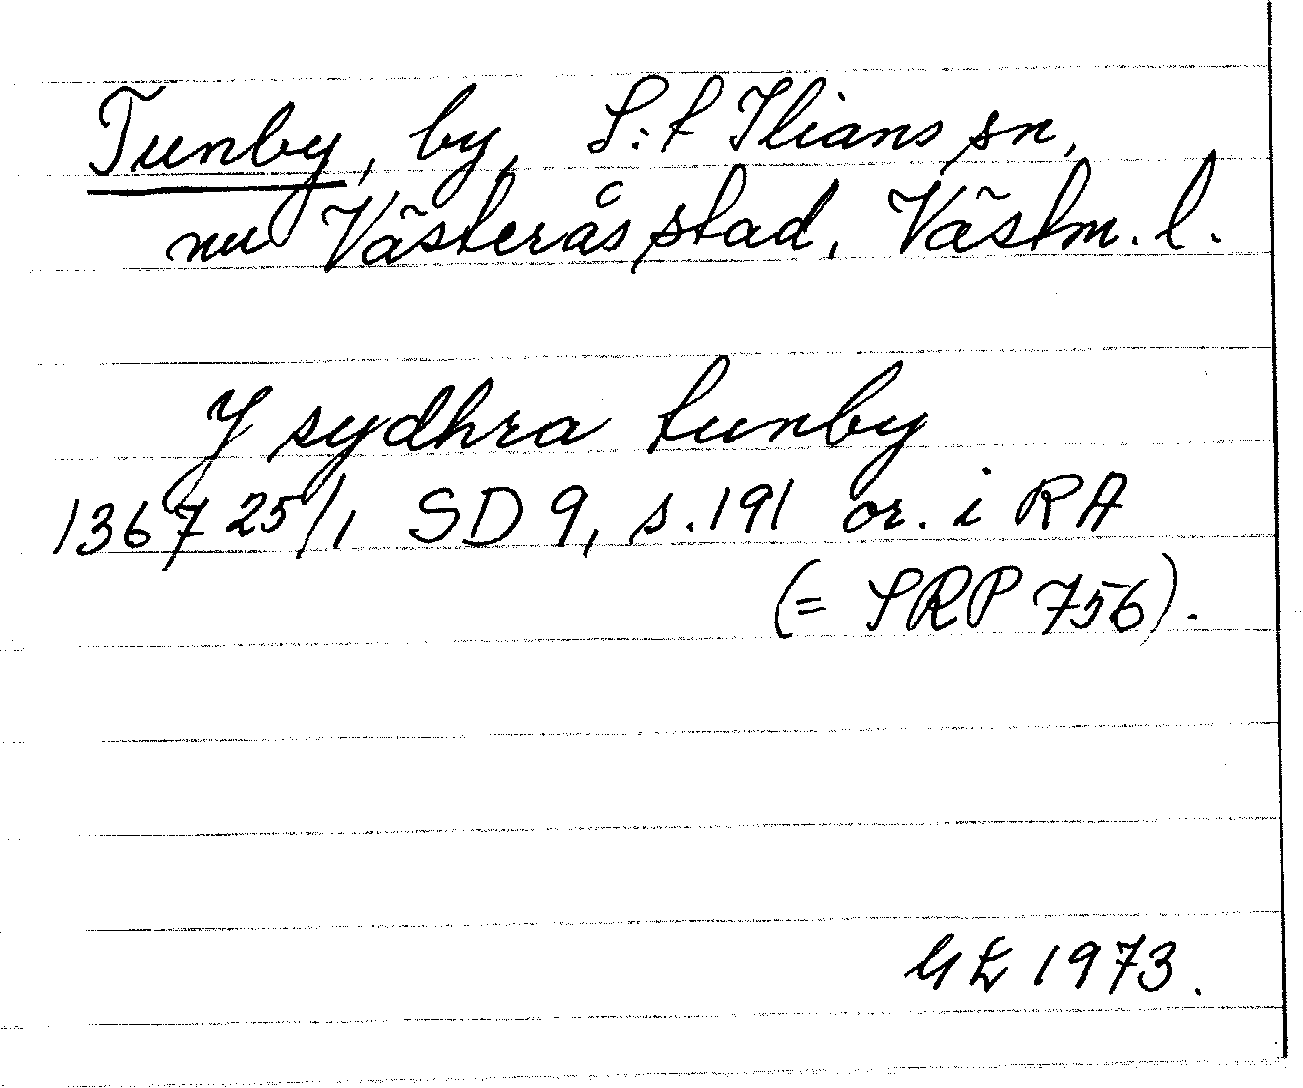 Tunby, by, S:t Ilians sn,
nu Västerås stad, Västm. l.
J sydhra tunby
1367 25/1 SD 9, s. 191 or. i RA
(= SRP 756).
GL 1973.